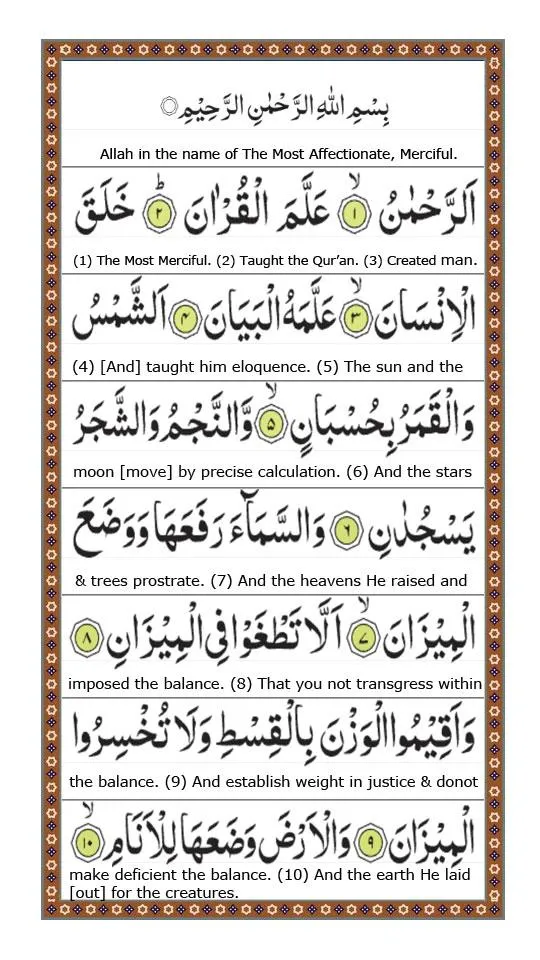 بِسْمِ اللهِ الرَّحْمٰنِ الرَّحِيْمِ
Allah in the name of The Most Affectionate, Merciful.
اَلرَّحْمٰنُ ۙ﴿۱﴾ عَلَّمَ الْقُرْاٰنَ ؕ﴿۲﴾ خَلَقَ
(1) The Most Merciful. (2) Taught the Qur’an. (3) Created man.
الْاِنْسَانَ ۙ﴿۳﴾ عَلَّمَهُ الْبَيَانَ ﴿۴﴾ اَلشَّمْسُ
(4) [And] taught him eloquence. (5) The sun and the
وَالْقَمَرُ بِحُسْبَانٍ ۙ﴿۵﴾ وَّالنَّجْمُ وَالشَّجَرُ
moon [move] by precise calculation. (6) And the stars
يَسْجُدٰنِ ﴿۶﴾ وَالسَّمَآءَ رَفَعَهَا وَوَضَعَ
& trees prostrate. (7) And the heavens He raised and
الْمِيْزَانَ ۙ﴿۷﴾ اَلَّا تَطْغَوْا فِي الْمِيْزَانِ ﴿۸﴾
imposed the balance. (8) That you not transgress within
وَاَقِيْمُوا الْوَزْنَ بِالْقِسْطِ وَلَا تُخْسِرُوا
the balance. (9) And establish weight in justice & donot
الْمِيْزَانَ ﴿۹﴾ وَالْاَرْضَ وَضَعَهَا لِلْاَنَامِ ۙ﴿۱۰﴾
make deficient the balance. (10) And the earth He laid
[out] for the creatures.